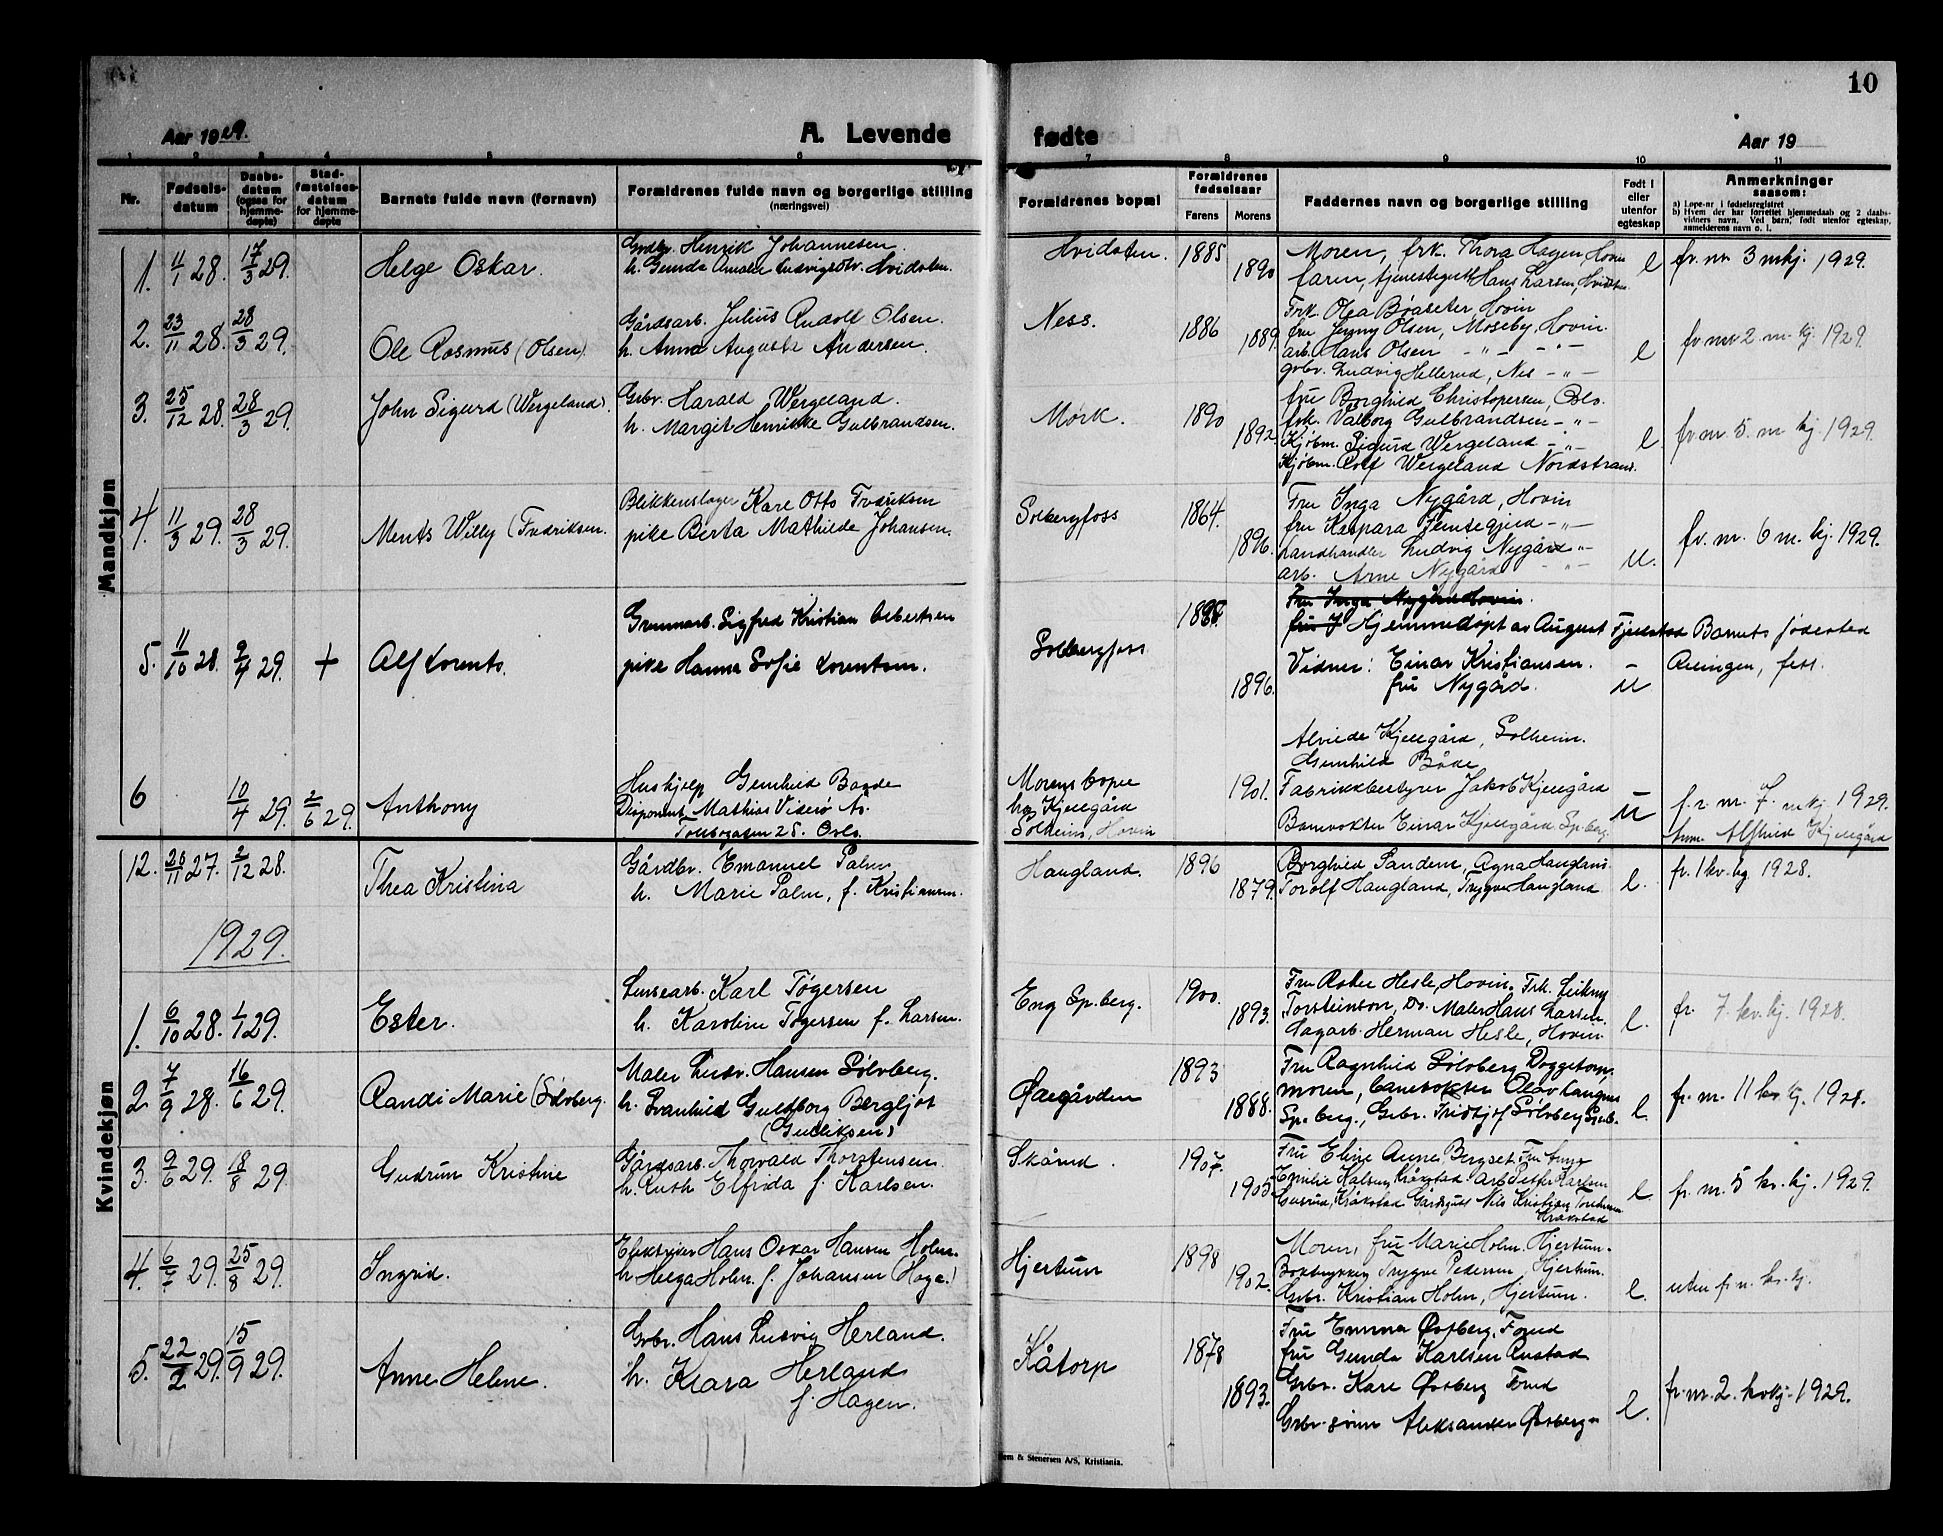 10
Aar 1929. A. Levende fødte Aar 19
1 2 3 4 5 6 7 8 9 10 11
Nr. Fødsels-datum Daabs-datum (ogsaa for hjemme-døpte) Stad-fæstelses-datum for hjemme-døpte Barnets fulde navn (fornavn) Forældrenes fulde navn og borgerlige stilling (næringsvei) Forældrenes bopæl Forældrenes fødselsaar Farens Morens Faddernes navn og borgerlige stilling Født i eller utenfor egteskap Anmerkninger saasom:
a) Løpe-nr. i fødselsregistret
b) Hvem der har forrettet hjemmedaab og 2 daabs-vidners navn. Ved barn, født utenfor egteskap, anmelderens navn o. l.
Mandkjøn
1. 4/1 28. 17/3 29. Helge Oskar.
Henrik Johannesen.
h. Gunda Amalie Ludvigsdtr. Hvidsten.
Hvidsten. 1885 1890
Moren, frk. Thora Hagen, Hovin
faren, tjenestegutt Hans Larsen, Hvidsten
e fv. nr 3 mkj. 1929.
2. 23/11 28. 28/3 29. Ole Rasmus (Olsen)
Gårdsarb. Julius Rudolf Olsen.
h. Anna Auguste Andersen.
Ness. 1886 1889
Frk. Olga Bøaseter, Hovin
fru Jenny Olsen, Moseby, Hovin.
arb. Hans Olsen - " - - " -
grbr. Ludvig Hellerud, Nes - " -
e fv nr 2. m. kj. 1929.
3. 25/12 28. 28/3 29. John Sigurd (Wergeland).
Grbr. Harald Wergeland.
h. Margit Henrikke Gulbrandsen.
Mørk. 1890 1892
fru Borghild Christopersen, Oslo.
frk. Valborg Gulbrandsen - " -
Kjøbm. Sigurd Wergeland - " -
Kjøbm. Rolf Wergeland Nordstrand.
e fv. nr. 5. m kj 1929.
4. 11/3 29. 28/3 29. Ments Willy (Fredriksen.
Blikkenslager Karl Otto Fredriksen
pike Berta Mathilde Johansen.
Solbergfoss 1864. 1896.
Fru Inga Nygård, Hovin
fru Kaspara - " -
Landhandler Ludvig Nygård - " -
arb. Arne Nygård - " -
u. fv. nr. 6 m. kj. 1929.
5. 11/10 28. 9/4 29. + Alf Lorents.
Grunnarb. Sigfred Kristian Albertsen
pike Hanna Sofie Lorentsen.
Solbergfoss 1896.
Fru Inga Nygård Hovin.
Hjemmedøpt av August Fjelstad
Vidner: Einar Kristiansen.
fru Nygård.
u Barnets fødested
6 10/4 29. 2/6 29. Anthony
Hushjelp Gunhild Baade
Disponent Mathias Viderø As.
28. Oslo.
Morens bopel
hos Kjellgård
Solheim, Hovin
1901.
Kjellgård, Solheim.
Gunhild Både
Fabrikkbestyrer Jakob Kjellgård
Banevokter Einar Kjellgård, Sp.berg.
u f. r. nr. 7. mkj 1929.
Kjellgård
Kvindekjøn
12. 26/11 27. 2/12 28. Thea Kristina
Gårdbr. Emanuel Palm
h. Marie Palm, f. Kristiansen.
Haugland. 1896 1879.
Borghild Sandem, Agna Haugland.
Torolf Haugland, Trygve Haugland
e. fr. 1 kv. kj 1928.
1929.
1. 6/10 28. 1/1 29. Ester.
Linsearb. Karl Tøgersen
h. Karoline Tøgersen f. Larsen.
Eng Sp.berg. 1900. 1893.
Fru Hesle, Hovin, Frk.
Torsteinson, Do. Maler Hans Larsen.
Sagarb. Herman Hesle, Hovin.
e. fr. 7. kv. kj. 1928.
2. 7/9 28. 16/6 29. Randi Marie (Sølvberg.
Maler Ludv. Hansen Sølvberg.
h. Svanhild Guldborg Bergljot
(Gulliksen)
Øiegården 1893 1888.
Fru Ragnhild Sølvberg
moren, banevokter Olav
Sp.berg., Grbr. Fridtjof Sølvberg Sp.b.
e. fr. nr. 11 kv. kj. 1928.
3. 9/6 29. 18/8 29. Gudrun Kristine
Gårdsarb. Thorvald Thorstensen.
h. Ruth Elfrida f. Karlsen.
Skårud. 1907. 1905.
Fru Eline Aune
Emilie Kråkstad. Arb. Petter Karlsen
Kråkstad Gårdsgutt Nils Kristian
Kråkstad
e. fr. nr. 5 kv. kj. 1929.
4. 6/7 29. 25/8 29. Ingrid.
Elektriker Hans Oskar Hansen Holm.
h. Helga Holm. f. Johansen (Haga.)
Hjertum 1898 1902.
Moren, fru Marie Holm. Hjertum.
Boktrykker Trygve Pedersen, Hjertum.
Grbr. Kristian Holm, Hjertum.
e. uten f. n. kv. kj.
5. 22/2 29. 15/9 29. Anne Helene.
Grbr. Hans Ludvig Herland.
h. Klara Herland
f. Hagen.
Kåtorp 1878 1893.
Fru Emma Østberg,
fru Gunda Karlsen Rustad
Grbr. Karl Østberg
Grbr.sønn Aleksander Østberg
e. fr. nr. 2. kvkj. 1929.
& Stenersen A/S, Kristiania.